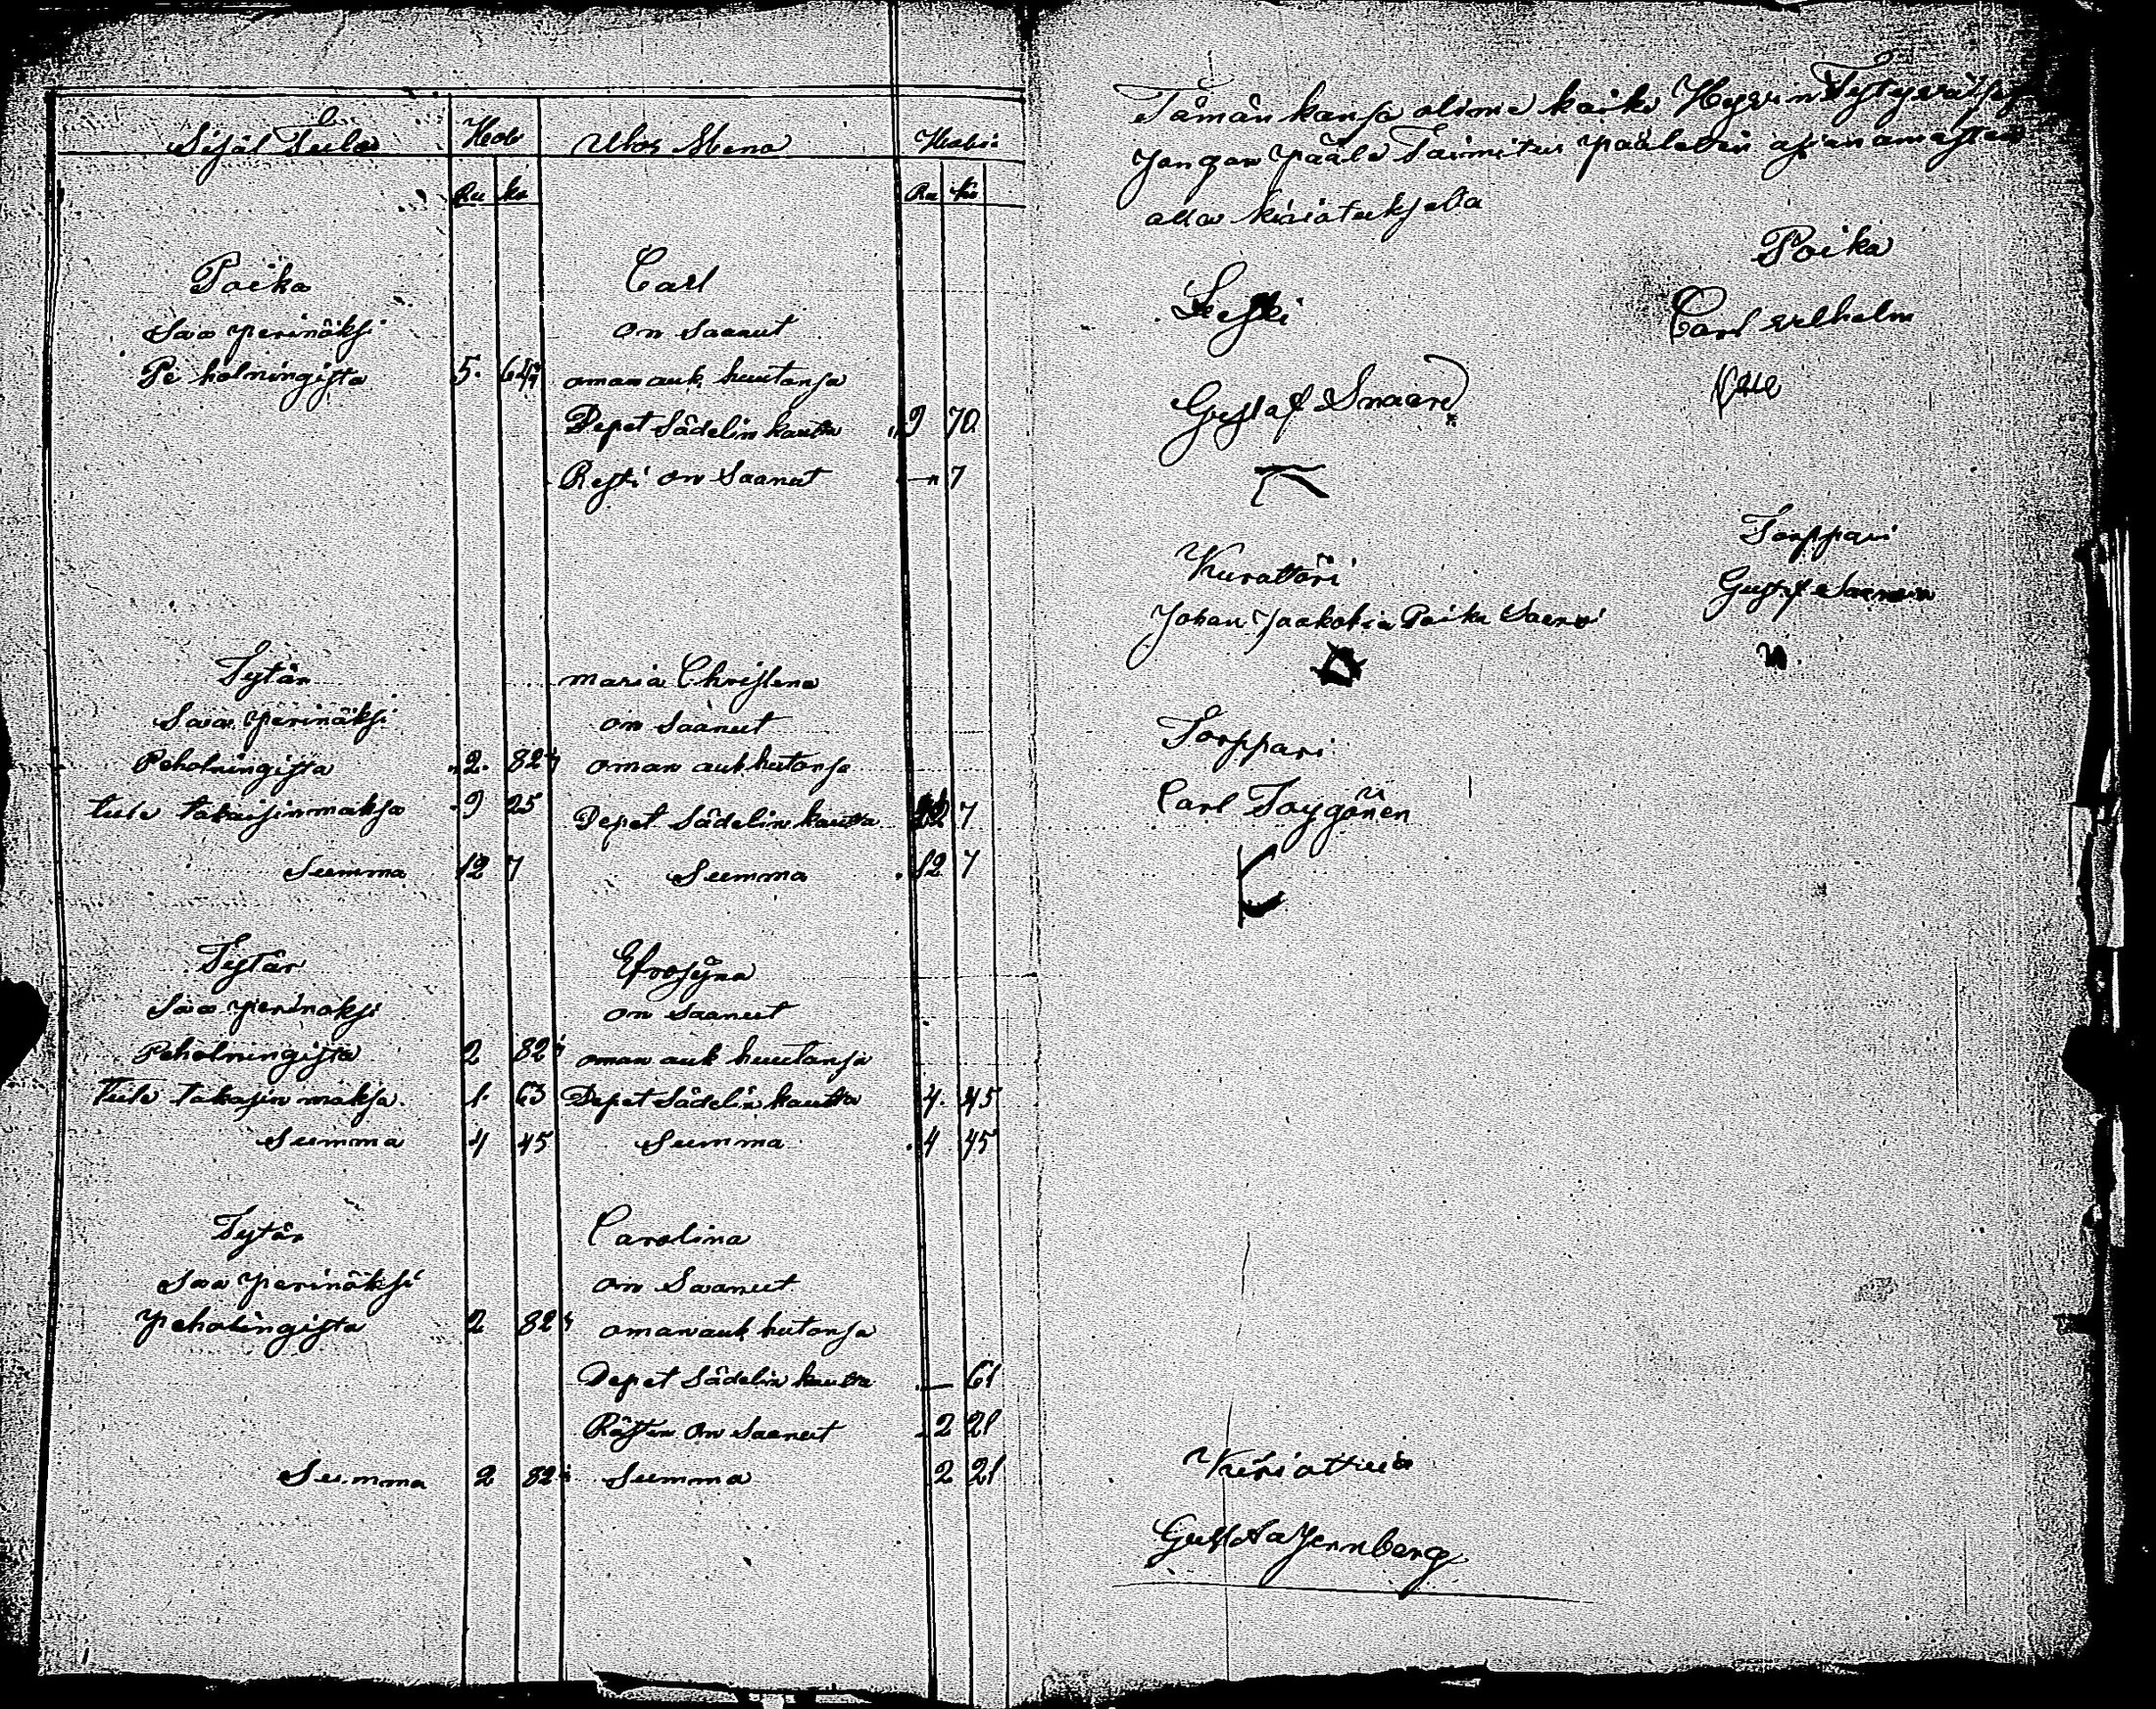 Sisäl Tulo Hob Ulos Meno Hobia
Ru ko Ru ko
Poika Carl
Saa perinäksi on Saanut
Pe holningista 5. 64 oman auk huutonsa
Depet Sådelin kautta 9 70
Resti on Saanut — 7
Tytär maria Christena
Saa perinäksi on Saanut
Peholningista 2. 82 oman auk hutonsa
tule takaisin maksa 9 25 Depet Sådelin kautta 12 7
Summa 12 7 Summa 12 7
Tytär Efrosyna
Saa perinäksi on Saanut
Peholningista 2 82 oman auk huutonsa
tule takasin maksa. 1. 63 Depet Sådelin kautta 4. 45
Summa 4 45 Summa 4 45
Tytär Carolina
Saa perinäksi on Saanut
peholingista 2 82 oman auk hutonsa
Depet Sådelin kautta — 61
Rästin on Saanut 2 21
Summa 2 82 Summa 2 21
Tämän kansa olime kaiki Hyvin Tytyväiset
Jongan pääle Toimitus pääletin
alla kiriatuksela
Leski
Gustaf Snaare
Poika
Carl Vilhelm
Kurattori
Johan Jaakobin Poika
Torppari
Gustaf
Torppari
Carl Toygönen
Kiriattuia
Gustava Jernberg